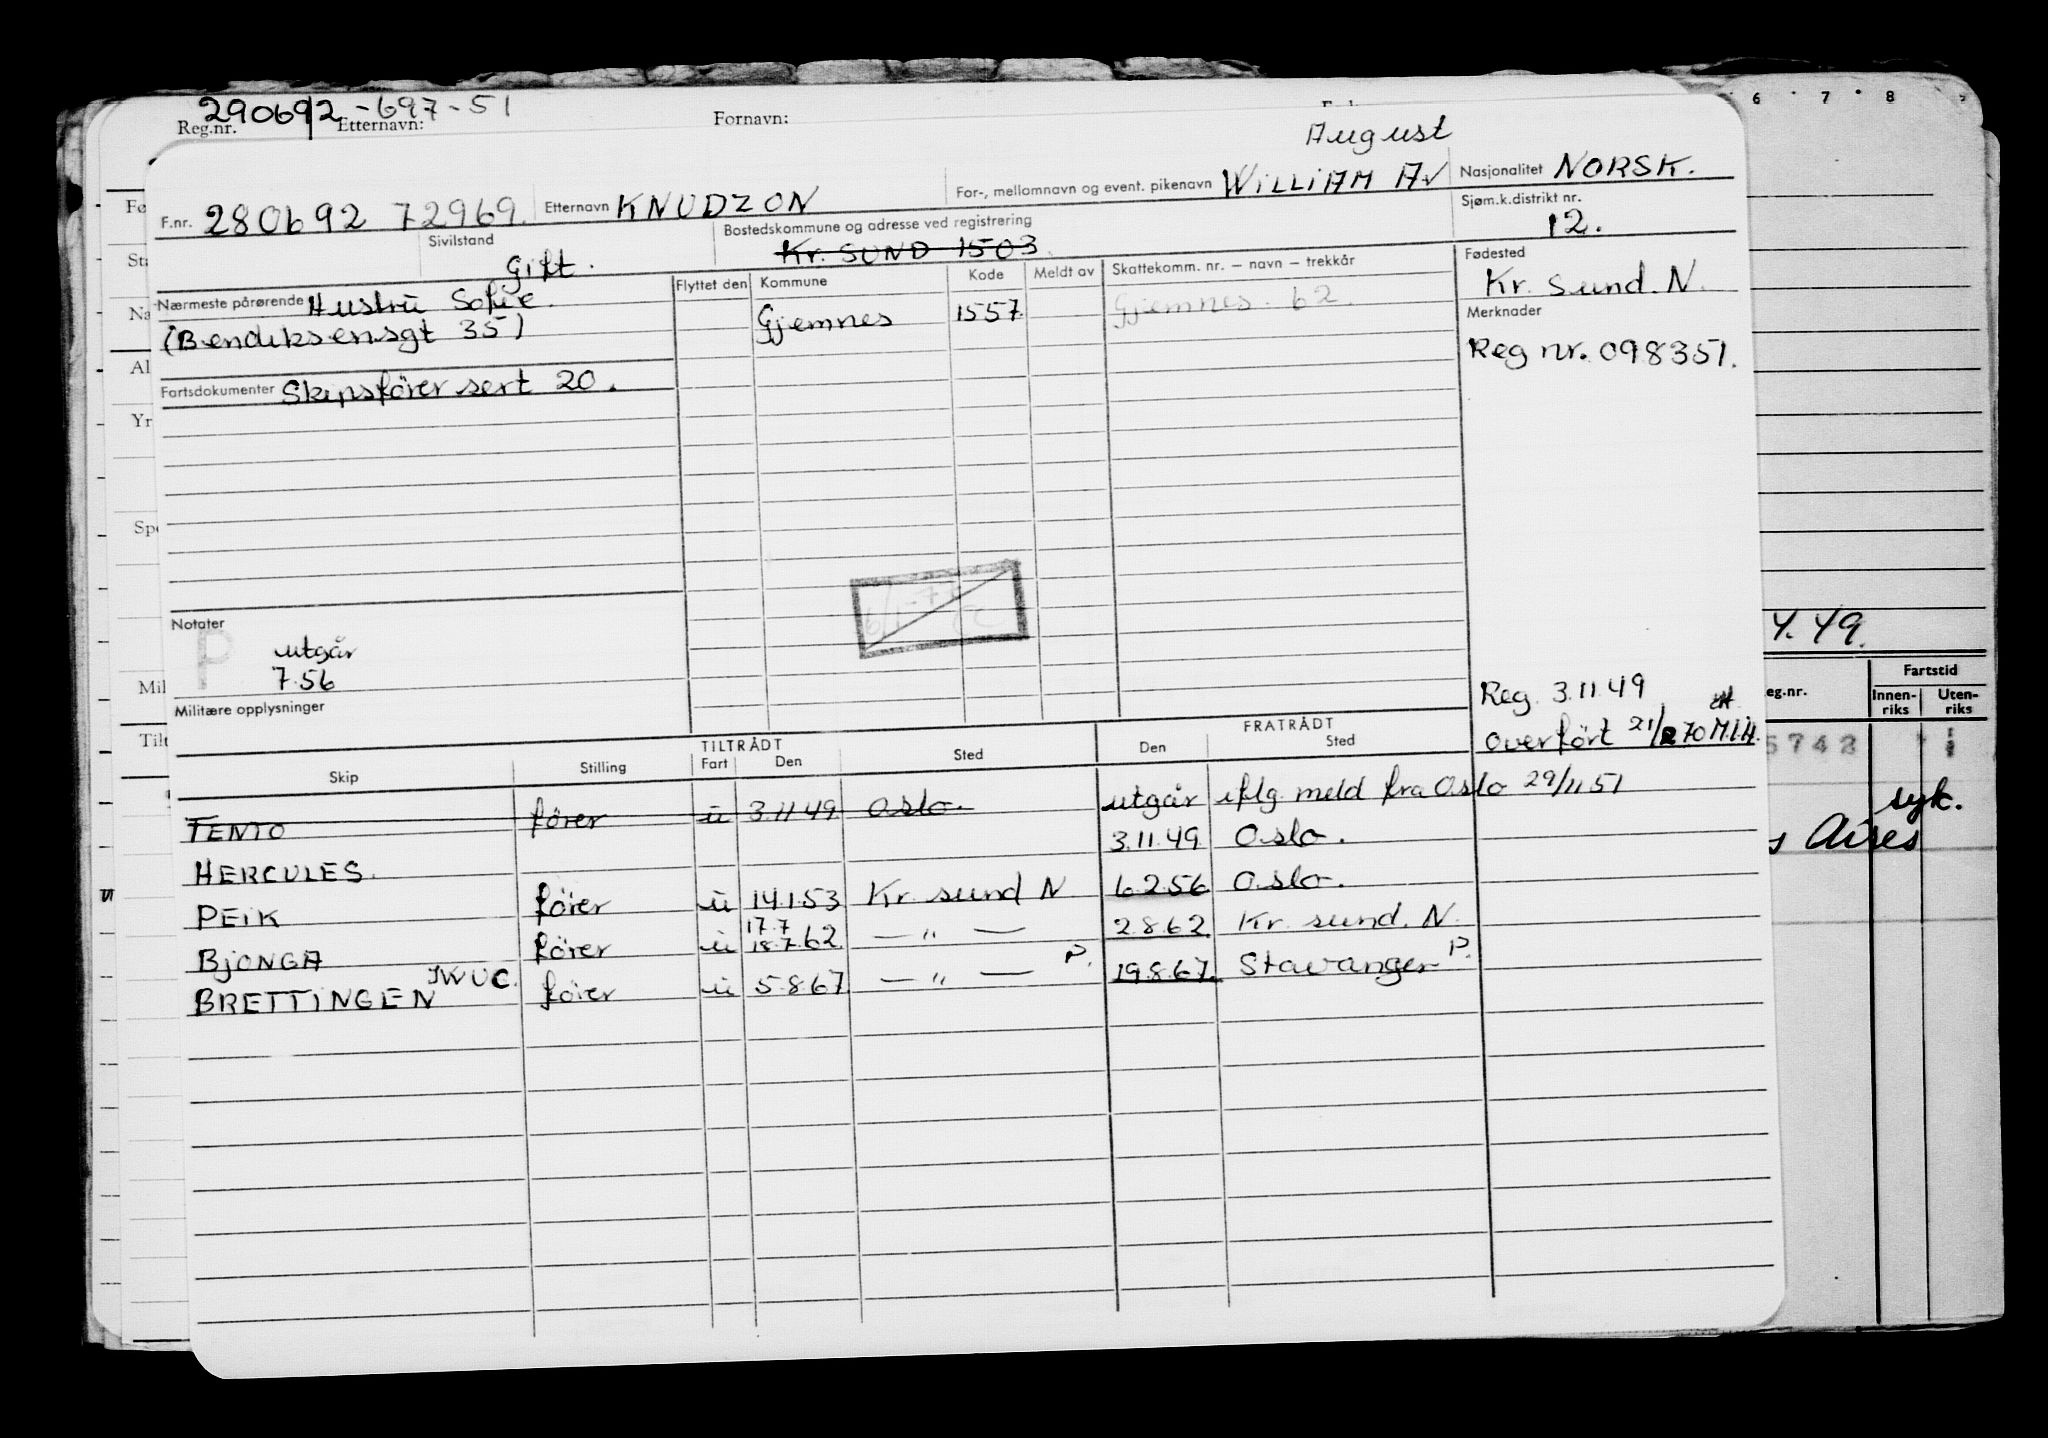 290692-697-51
Reg.nr. Etternavn: Fornavn:
6 7 8
August
F.nr. 280692 72969. Etternavn KNUDZON For-, mellomnavn og event. pikenavn WILLIAM A Nasjonalitet NORSK.
Sivilstand Gift. Bostedskommune og adresse ved registrering Kr. SUND 1503 Sjøm.k.distrikt nr. 12.
Nærmeste pårørende Hustru Sofie. Flyttet den Kommune Kode Meldt av Skattekomm. nr. – navn – trekkår Fødested
(Bendiksensgt 35) Gjemnes 1557 Gjemnes. 62. Kr. Sund. N.
Merknader
Reg nr. 098351.
Fartsdokumenter Skipsfører sert 20.
Notater
P utgår
7.56
Militære opplysninger
Reg. 3.11.49
Overført 21/2 70 M.L.H.
4.49.
eg.nr. Fartstid
Innen-riks Uten-riks
5742
syk.
s Aires
TILTRÅDT FRATRÅDT
Skip Stilling Fart Den Sted Den Sted
TENTO fører u 3.11.49 Oslo. utgår iflg. meld fra Oslo 29/11.51
HERCULES. 3.11.49 Oslo.
PEIK fører u 14.1.53 Kr. sund N 6.2.56 Oslo.
BJONGA fører u 17.7 18.7.62 — " — 2.8.62. Kr. sund. N.
BRETTINGEN JWUC. fører u 5.8.67 — " — P. 19.8.67. Stavanger P.